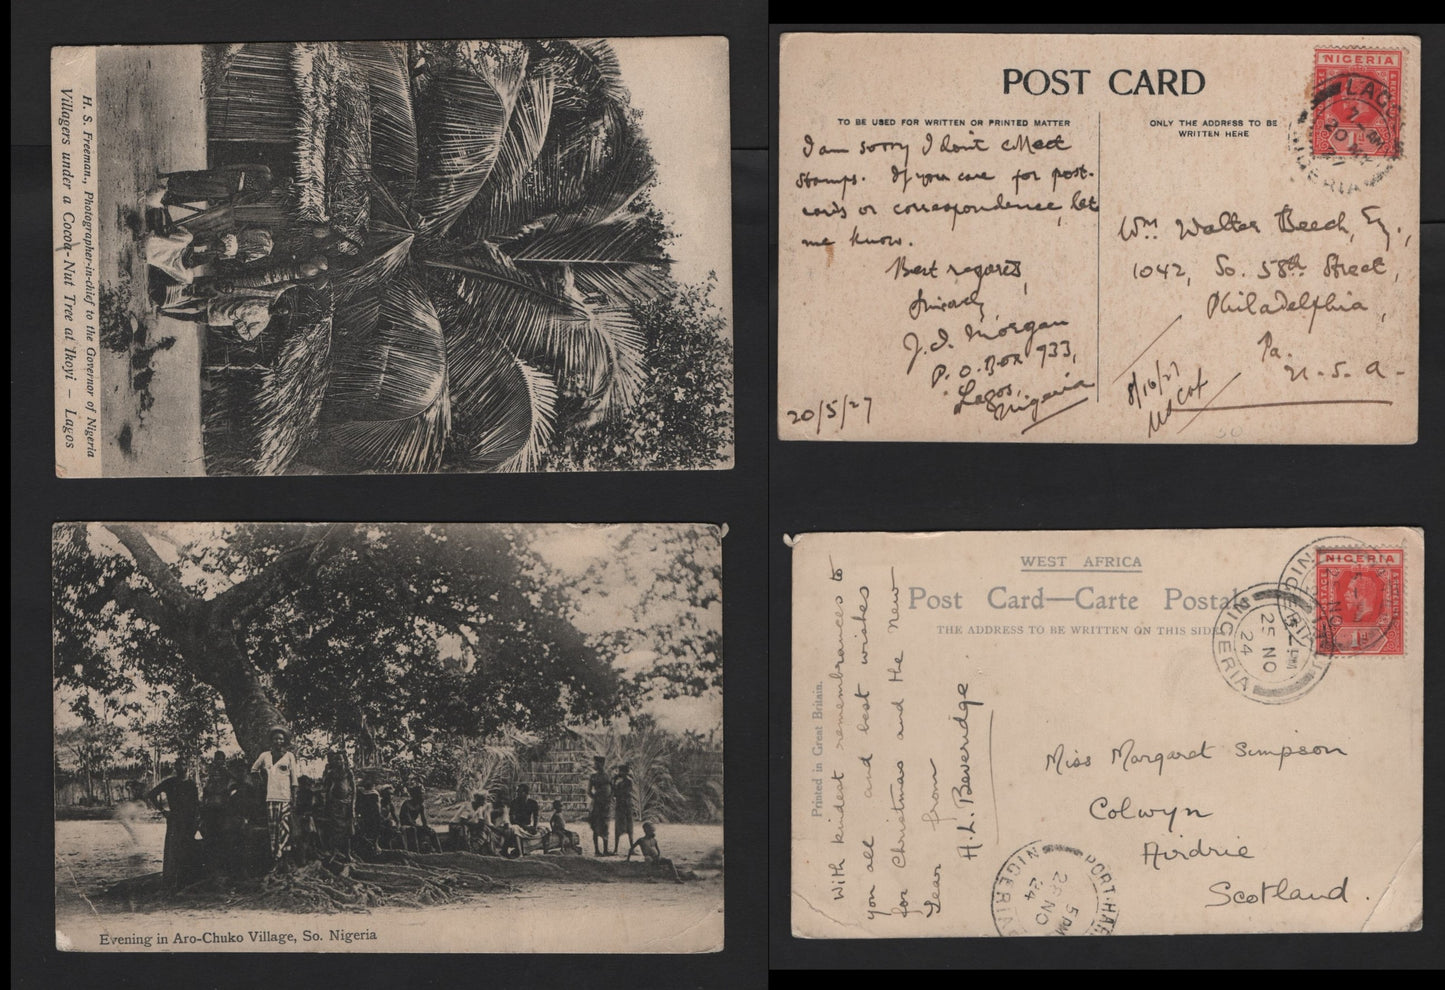 H. S. Freeman., Photographer-in-chief to the Governor of Nigeria
Villagers under a Cocoa-Nut Tree at Ikoyi — Lagos
POST CARD
TO BE USED FOR WRITTEN OR PRINTED MATTER
ONLY THE ADDRESS TO BE
WRITTEN HERE
NIGERIA
LAGOS
NIGERIA
I am sorry I don't collect
stamps. If you care for post-
cards or correspondence, let
me know.
Best regards,
Sincerely
J. I. Morgan
P. O. Box 733,
Lagos,
Nigeria
20/5/27
Wm. Walter Beech, Esq.,
1042, So. 58th Street,
Philadelphia,
Pa.
U. S. A.
8/16/27
Evening in Aro-Chuko Village, So. Nigeria
WEST AFRICA
Post Card—Carte Postale
THE ADDRESS TO BE WRITTEN ON THIS SIDE
Printed in Great Britain.
With kindest remembrances to
you all and best wishes
for Christmas and the New
Year from
H. L. Beveridge
NIGERIA
POSTAGE
& REVENUE
1d
25 NO
24
NIGERIA
Miss Margaret Simpson
Colwyn
Airdrie
Scotland.
PORT-HAR
5 PM
28 NO
24
NIGERIA